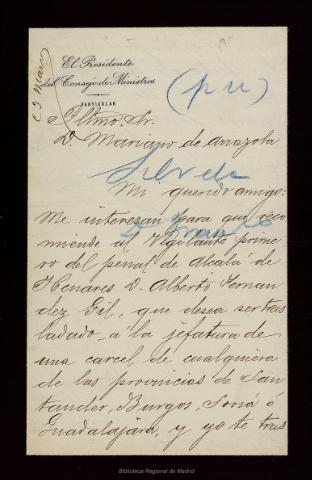 El Presidente
del Consejo de Ministros
PARTICULAR
9 Marzo
(pu)
Illmo. Sr.
D. Mariano de Arrazola
Silvela
Mi querido amigo:
D. Franco
Me interesan para que reco
miende al Vigilante prime
ro del penal de Alcalá de
Henares D. Alberto Fernan
dez Gil, que desea ser tras
ladado a la jefatura de
una carcel de cualquiera
de las provincias de San
tander, Burgos, Soria ó
Guadalajara, y yo te tras
Biblioteca Regional de Madrid